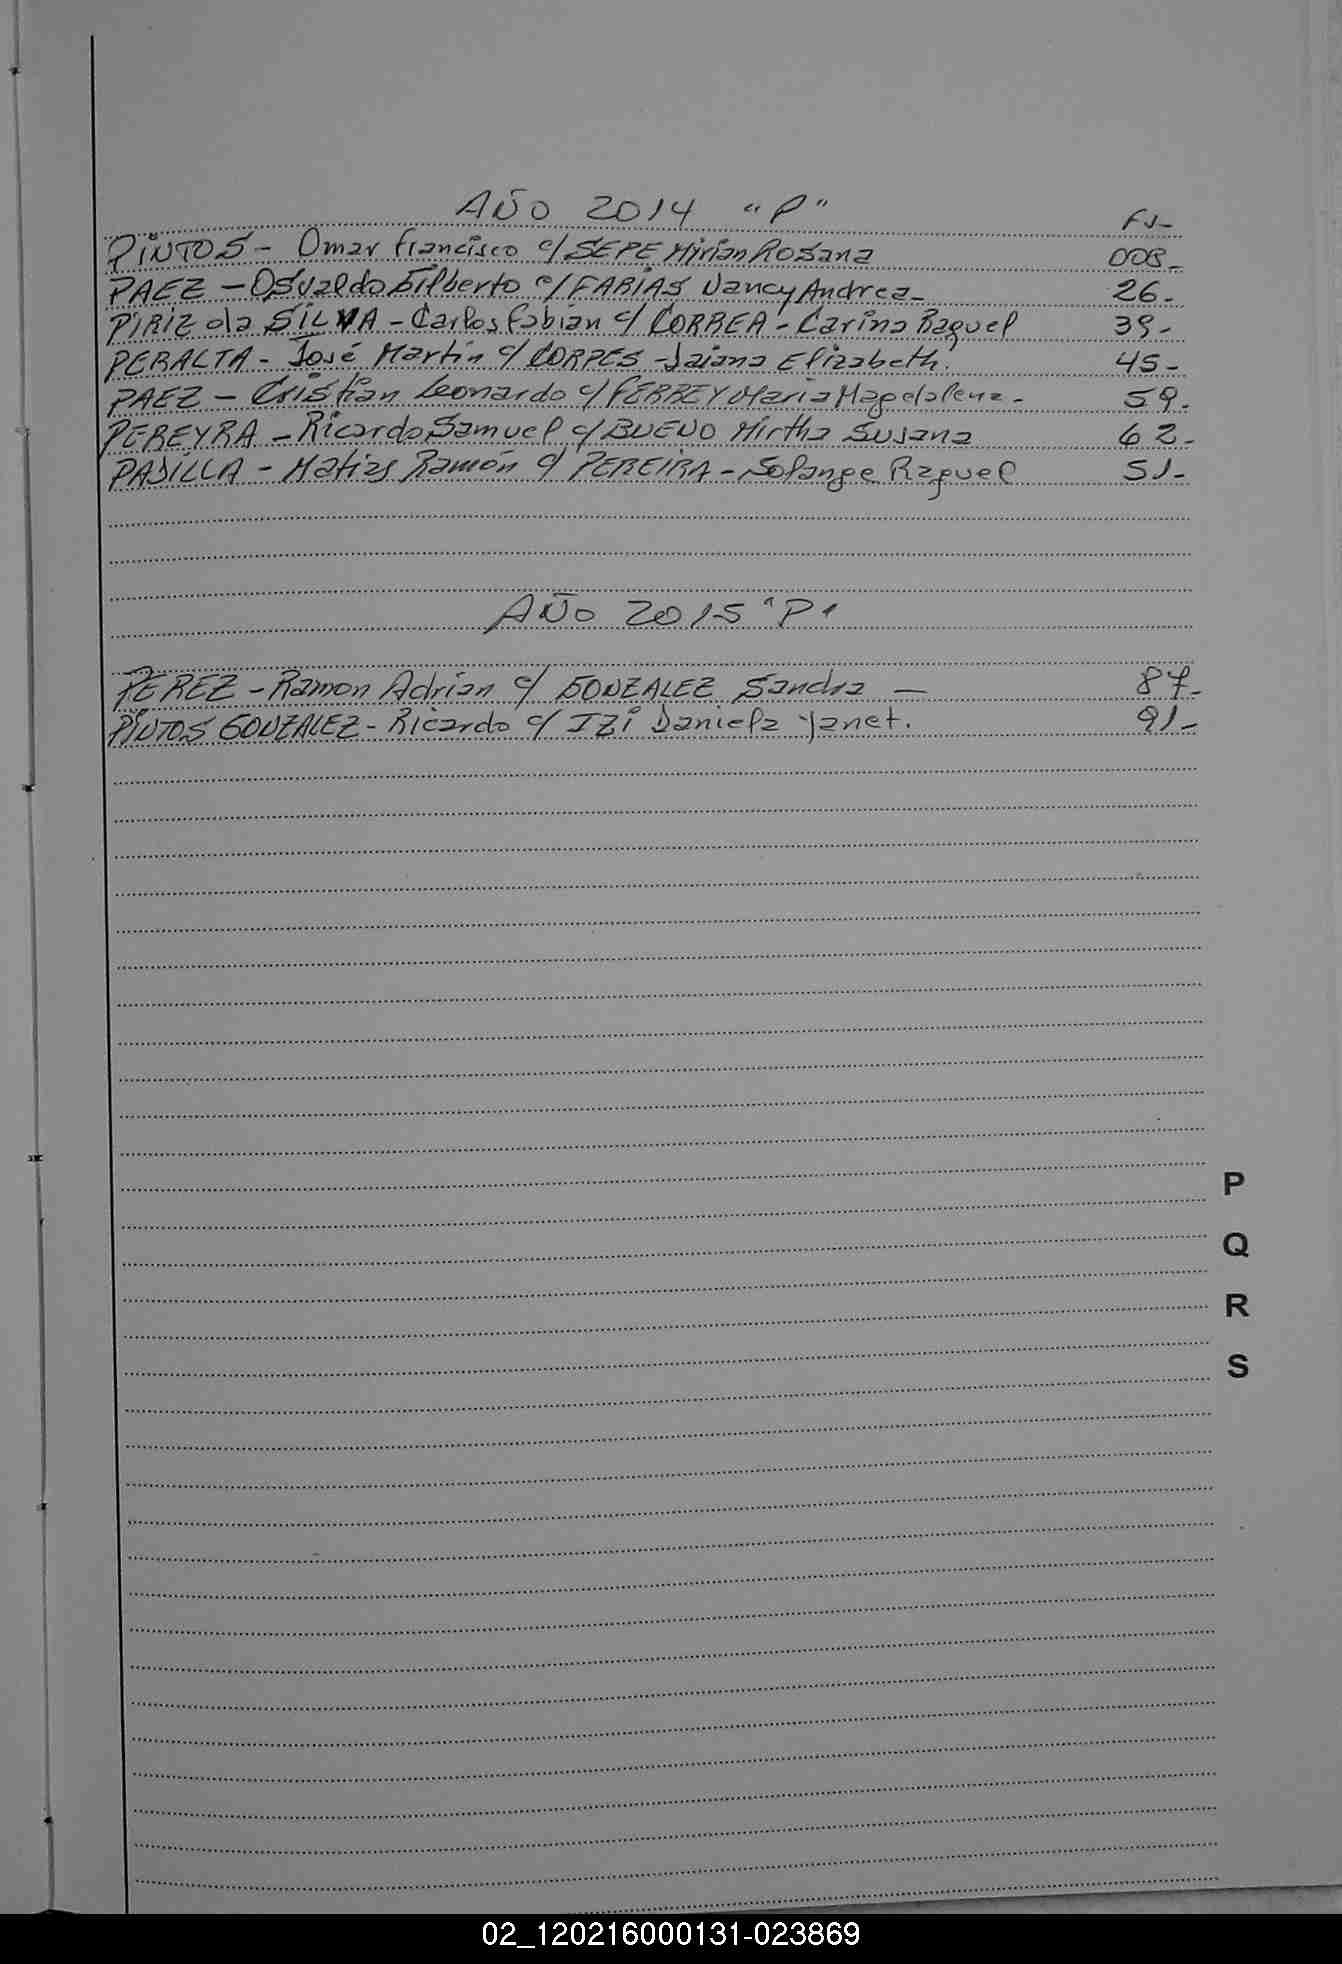 AÑO 2014 "P"
FS-
PINTOS - Omar Francisco c/ SEPE Mirian Rosana 008-
PAEZ - Osvaldo Gilberto c/ FARIAS Nancy Andrea - 26-
PIRIZ da SILVA - Carlos Fabian c/ CORREA - Carina Raquel 39-
PERALTA - José Martín c/ CORPES - Daiana Elizabeth. 45-
PAEZ - Cristian Leonardo c/ FERREY Maria Magdalena - 59.
PEREYRA - Ricardo Samuel c/ BUENO Mirtha Susana 62-
PADILLA - Matias Ramón c/ PEREIRA - Solange Raquel 51-
AÑO 2015 "P"
PEREZ - Ramon Adrian c/ GONZALEZ Sandra — 87-
PINTOS GONZALEZ - Ricardo c/ IZI Daniela Yanet. 91-
P
Q
R
S
02_120216000131-023869